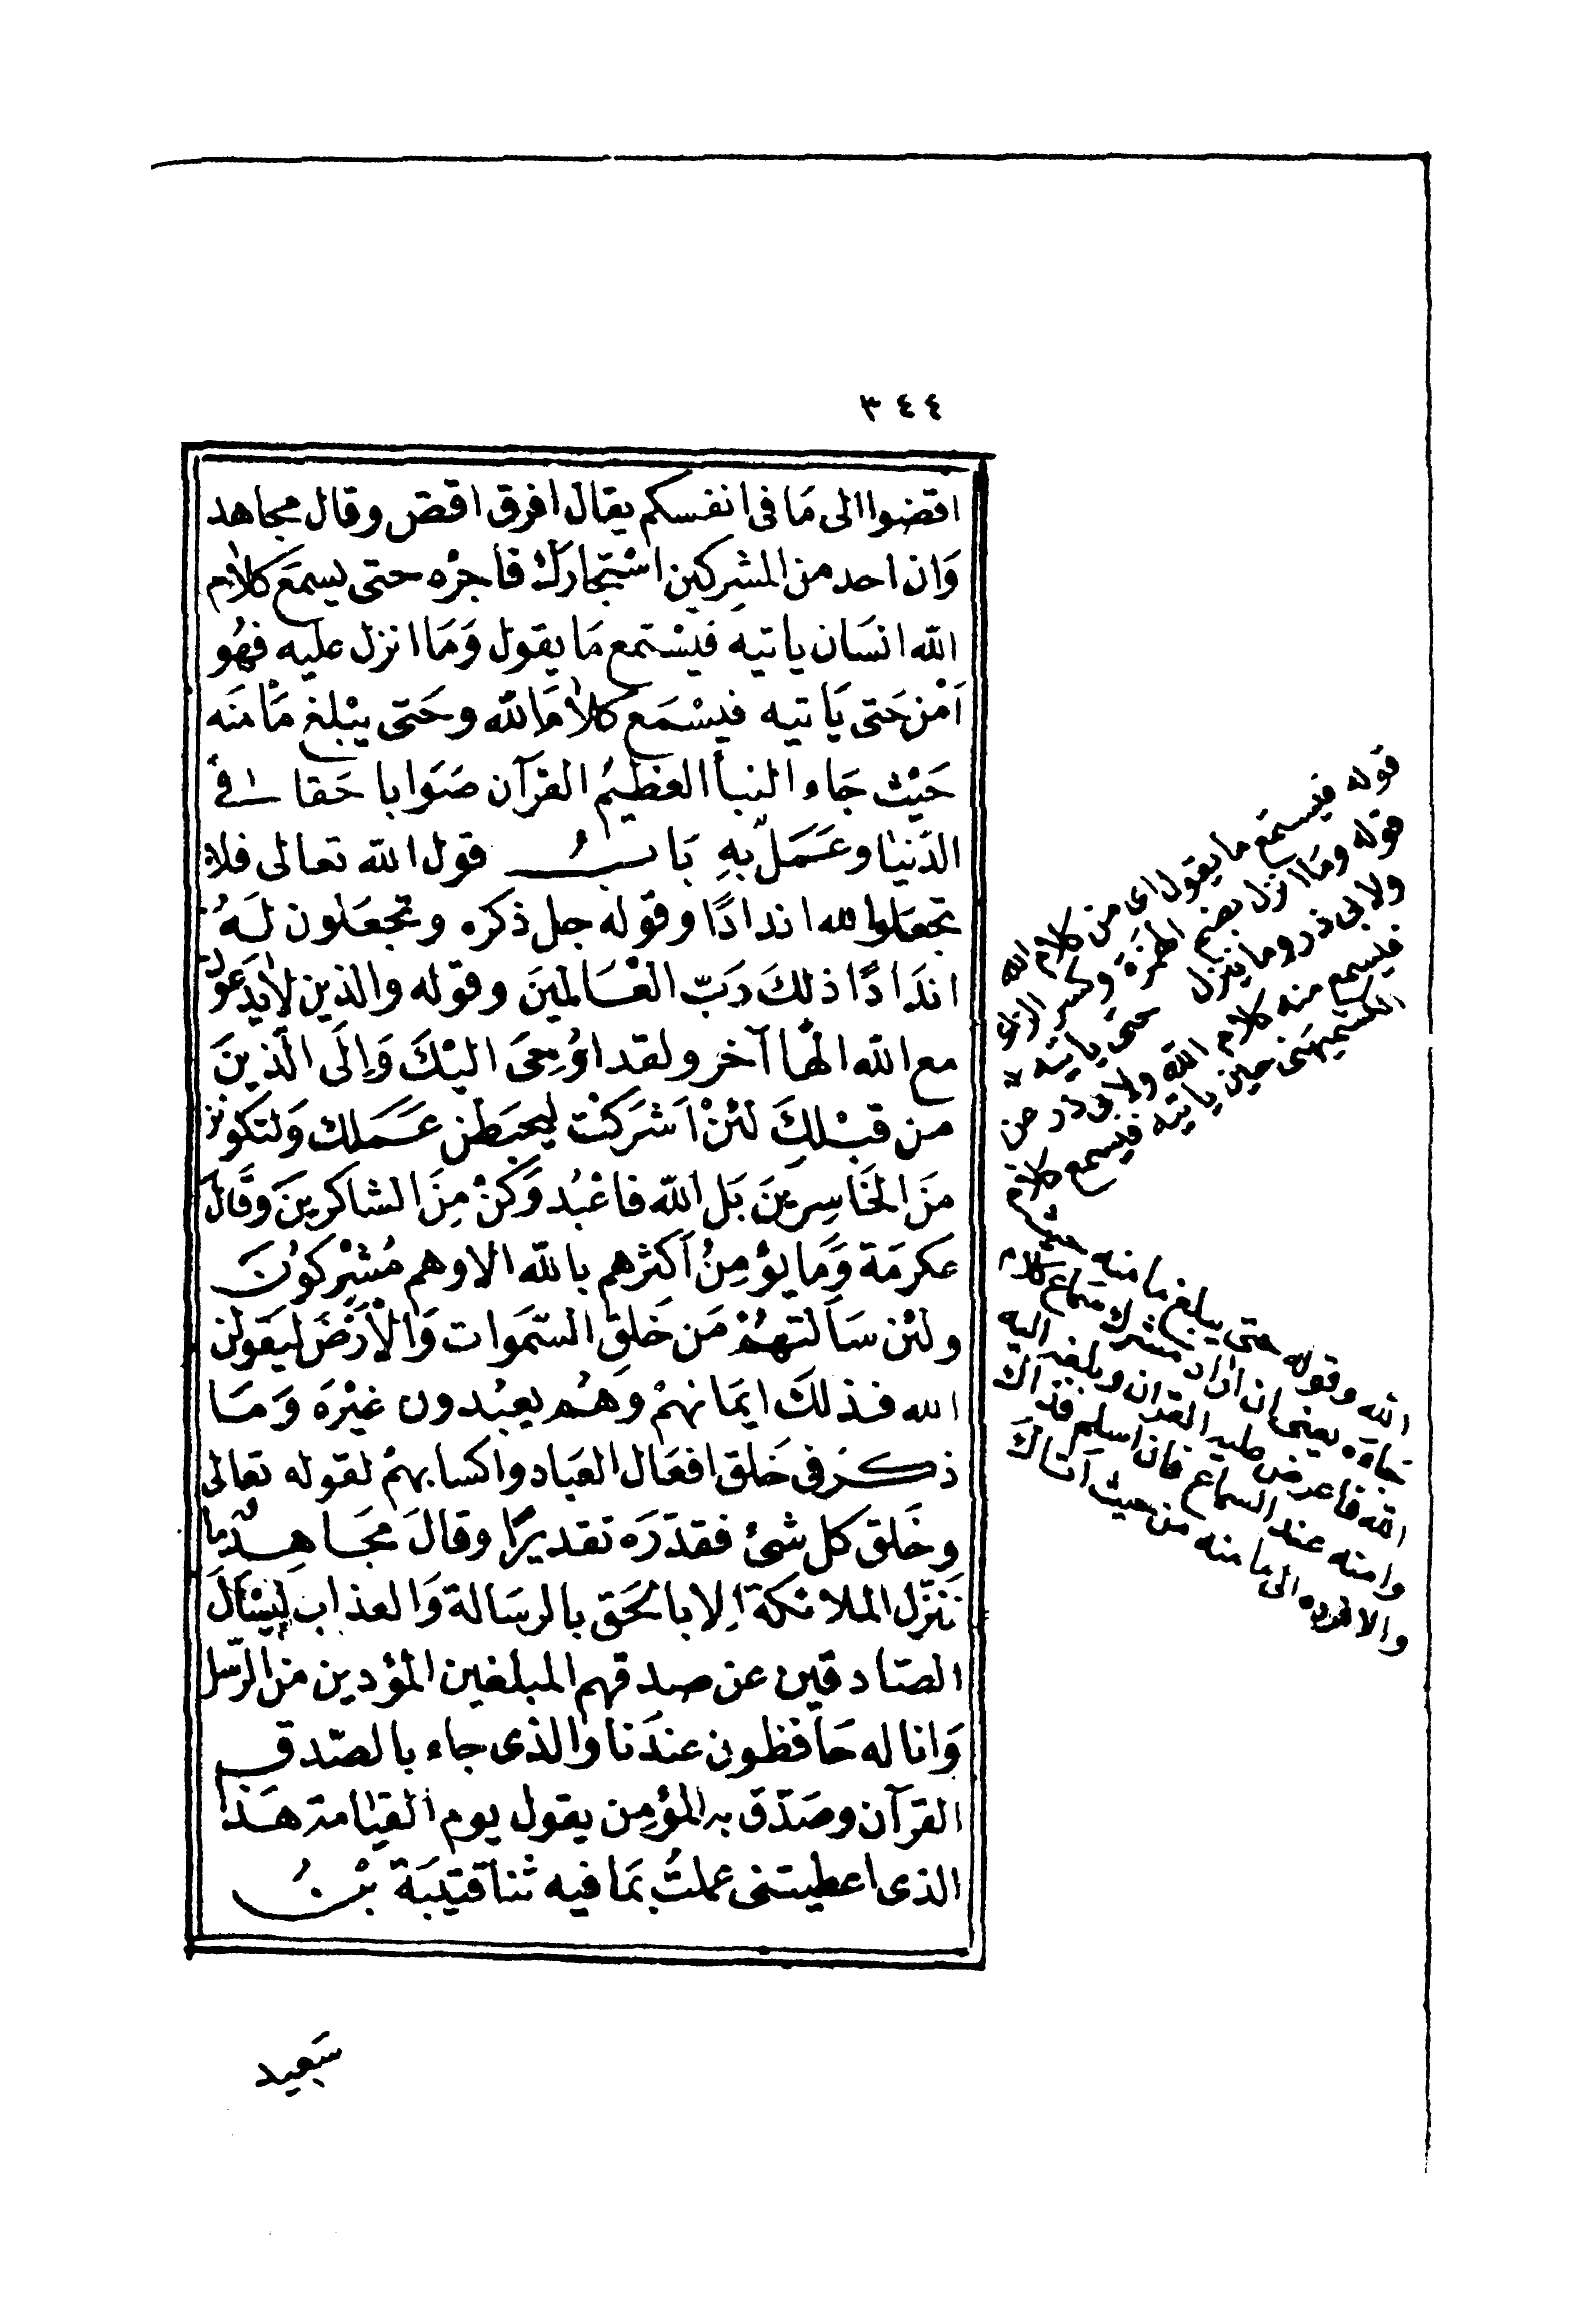 ٣٤٤
اقضوا الى مَا فى انفسكم يقال افرق اقض وقال مجاهد
وَان احد من المشركين اسْتجارك فاجرْه حتى يسمعَ كلام
الله انسَان ياتيه فيسْتمع مَا يقول وَمَا انزل عليه فهُو
اَمْن حَتى يَاتيه فيسْمَع كلامَ الله وحَتى يبْلغ مَأمنَه
حَيْث جَاء النبأ العظيمُ القرآن صَوابا حَقا فى
الدنيَا وعَمَل بهِ بَابُ قول الله تعالى فلا
تجعَلوا لله اندادًا وقوله جل ذكره وتجعَلون لَهُ
اندَادًا ذلكَ رَبّ العَالمينَ وقوله والذين لا يدعون
مع الله الهًا آخر ولقد اوُحِىَ اليْكَ وَاِلَى الّذينَ
من قبْلكَ لئنْ اَشرَكْت ليحبَطن عَمَلك وَلتكونن
منَ الخَاسِرينَ بَل الله فاعْبُد وَكنْ مِنَ الشاكرينَ وقَالَ
عكرمَة وَمَا يؤمِنُ اَكثرهم بالله الا وهم مُشِرْكونَ
ولئن سَاَلتهُمْ مَن خَلق السّمَوات وَالْاَرْضَ ليَقولن
الله فذلكَ ايمَانهمْ وهُم يعبُدون غيْرَه وَمَا
ذكرَ فى خَلق افعَال العبَاد واكسابهمْ لقوله تعالى
وخَلق كل شئ فقدّرَه تقديرًا وقالَ مجَاهِدٌ ما
نَنَزّل الملائكة اِلا بالحَق بالرسَالة وَالعذاب ليَسْأَلَ
الصّادقين عن صدقهم المبلغين المؤدين من الرّسل
وَانا له حَافظون عندَنا والذى جاء بالصّدق
القرآن وصَدّق به المؤمِن يقول يوم القيَامة هَذا
الذى اعطيتنى عملتُ بمَا فيه ثنا قتيبَة بْنُ
سَعيد
قوله فيسمَع ما يقول اى من كلام الله
قوله ومَا انزل بضم الهمزَة وكسر الزاى
ولابى ذر وما ينزل حتى ياتيه
فيسمع منه كلام الله ولابى ذر عن
الكشميهَنى حين ياتيه فيسمع كلام
الله وقوله حتى يبلغ مامنه حيث
جاءَه يعنى ان اراد مشرك سماع كلام
الله فاعرض عليه القرآن وبلغه اليه
وامنه عند السماع فان اسلم فذاك
والا فرده الى مامنه من حيث اَتاك